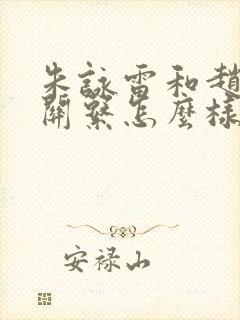 朱詠雷和趙
關繫怎麼樣
安禄山